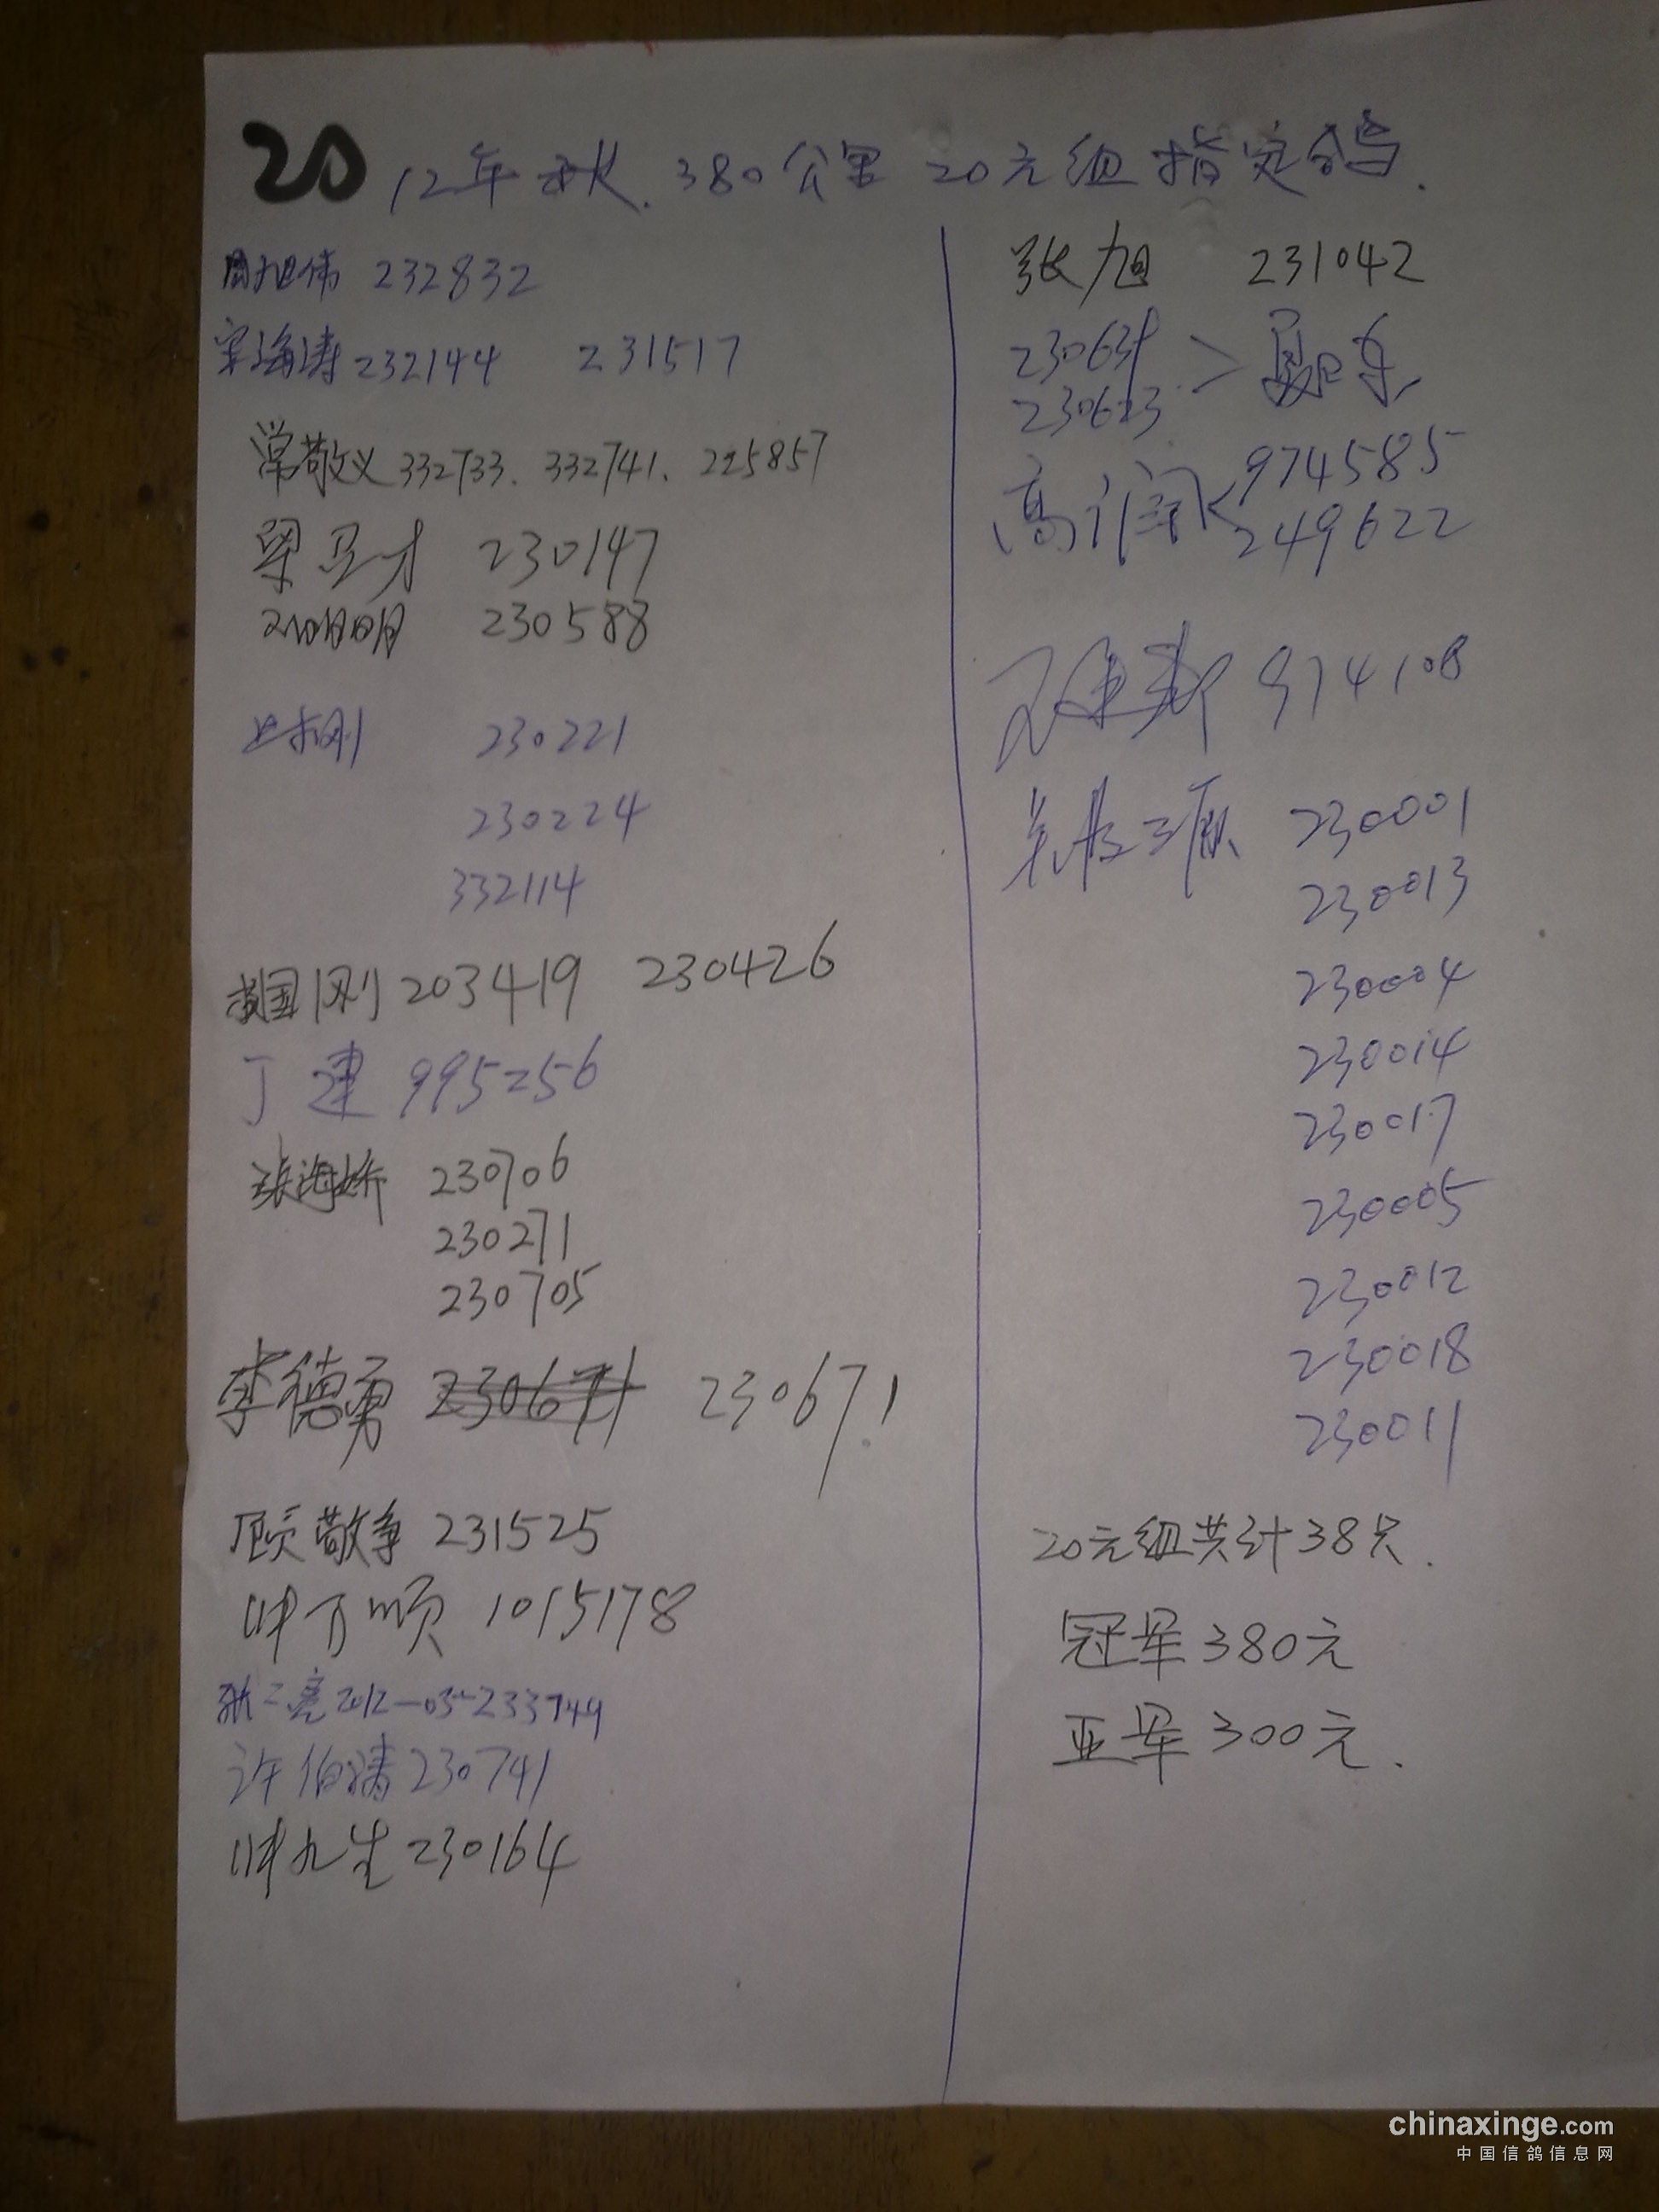 2012年秋.380公里 20元组指定鸽.
周旭伟 232832
宋海涛 232144 231517
常敬义 332733. 332741. 225857
梁卫才 230147
明明 230588
刚 230221
230224
332114
黄国刚 203419 230426
丁建 995256
张海娇 230706
230271
230705
李德勇 230671
顾敬争 231525
帅万顺 1015178
张二亮 2012-03-233749
许伯涛 230741
帅九生 230164
张旭 231042
230623
高润 974585
249622
974108
230001
230013
230004
230014
230017
230005
230012
230018
230011
20元组共计38只.
冠军380元
亚军300元.
chinaxinge.com
中国信鸽信息网